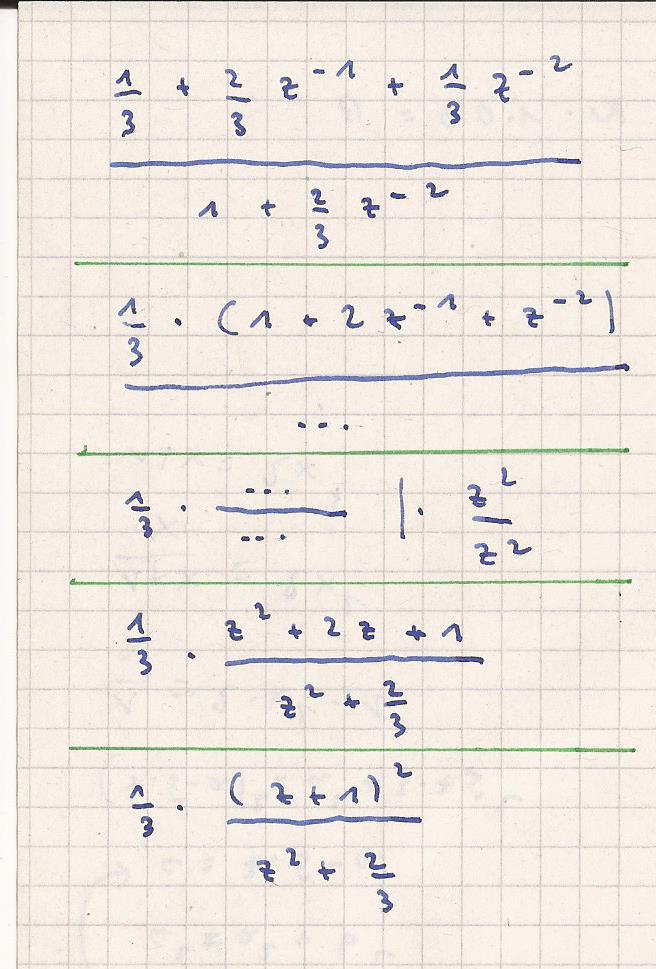 1/3 + 2/3 z^-1 + 1/3 z^-2
1 + 2/3 z^-2
1/3 · (1 + 2 z^-1 + z^-2)
...
1/3 · .../... | · z^2/z^2
1/3 · (z^2 + 2z + 1)/(z^2 + 2/3)
1/3 · (z+1)^2/(z^2 + 2/3)